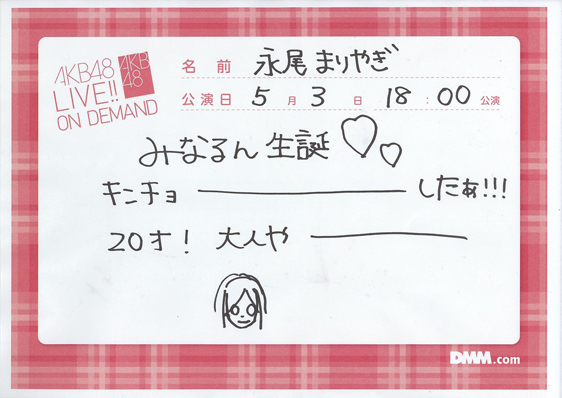 AKB48
LIVE!!
ON DEMAND
AKB
48
名前 永尾まりやぎ
公演日 5月3日 18:00公演
みなるん生誕♡♡
キンチョーしたぁ!!!
20才!大人やー
DMM.com